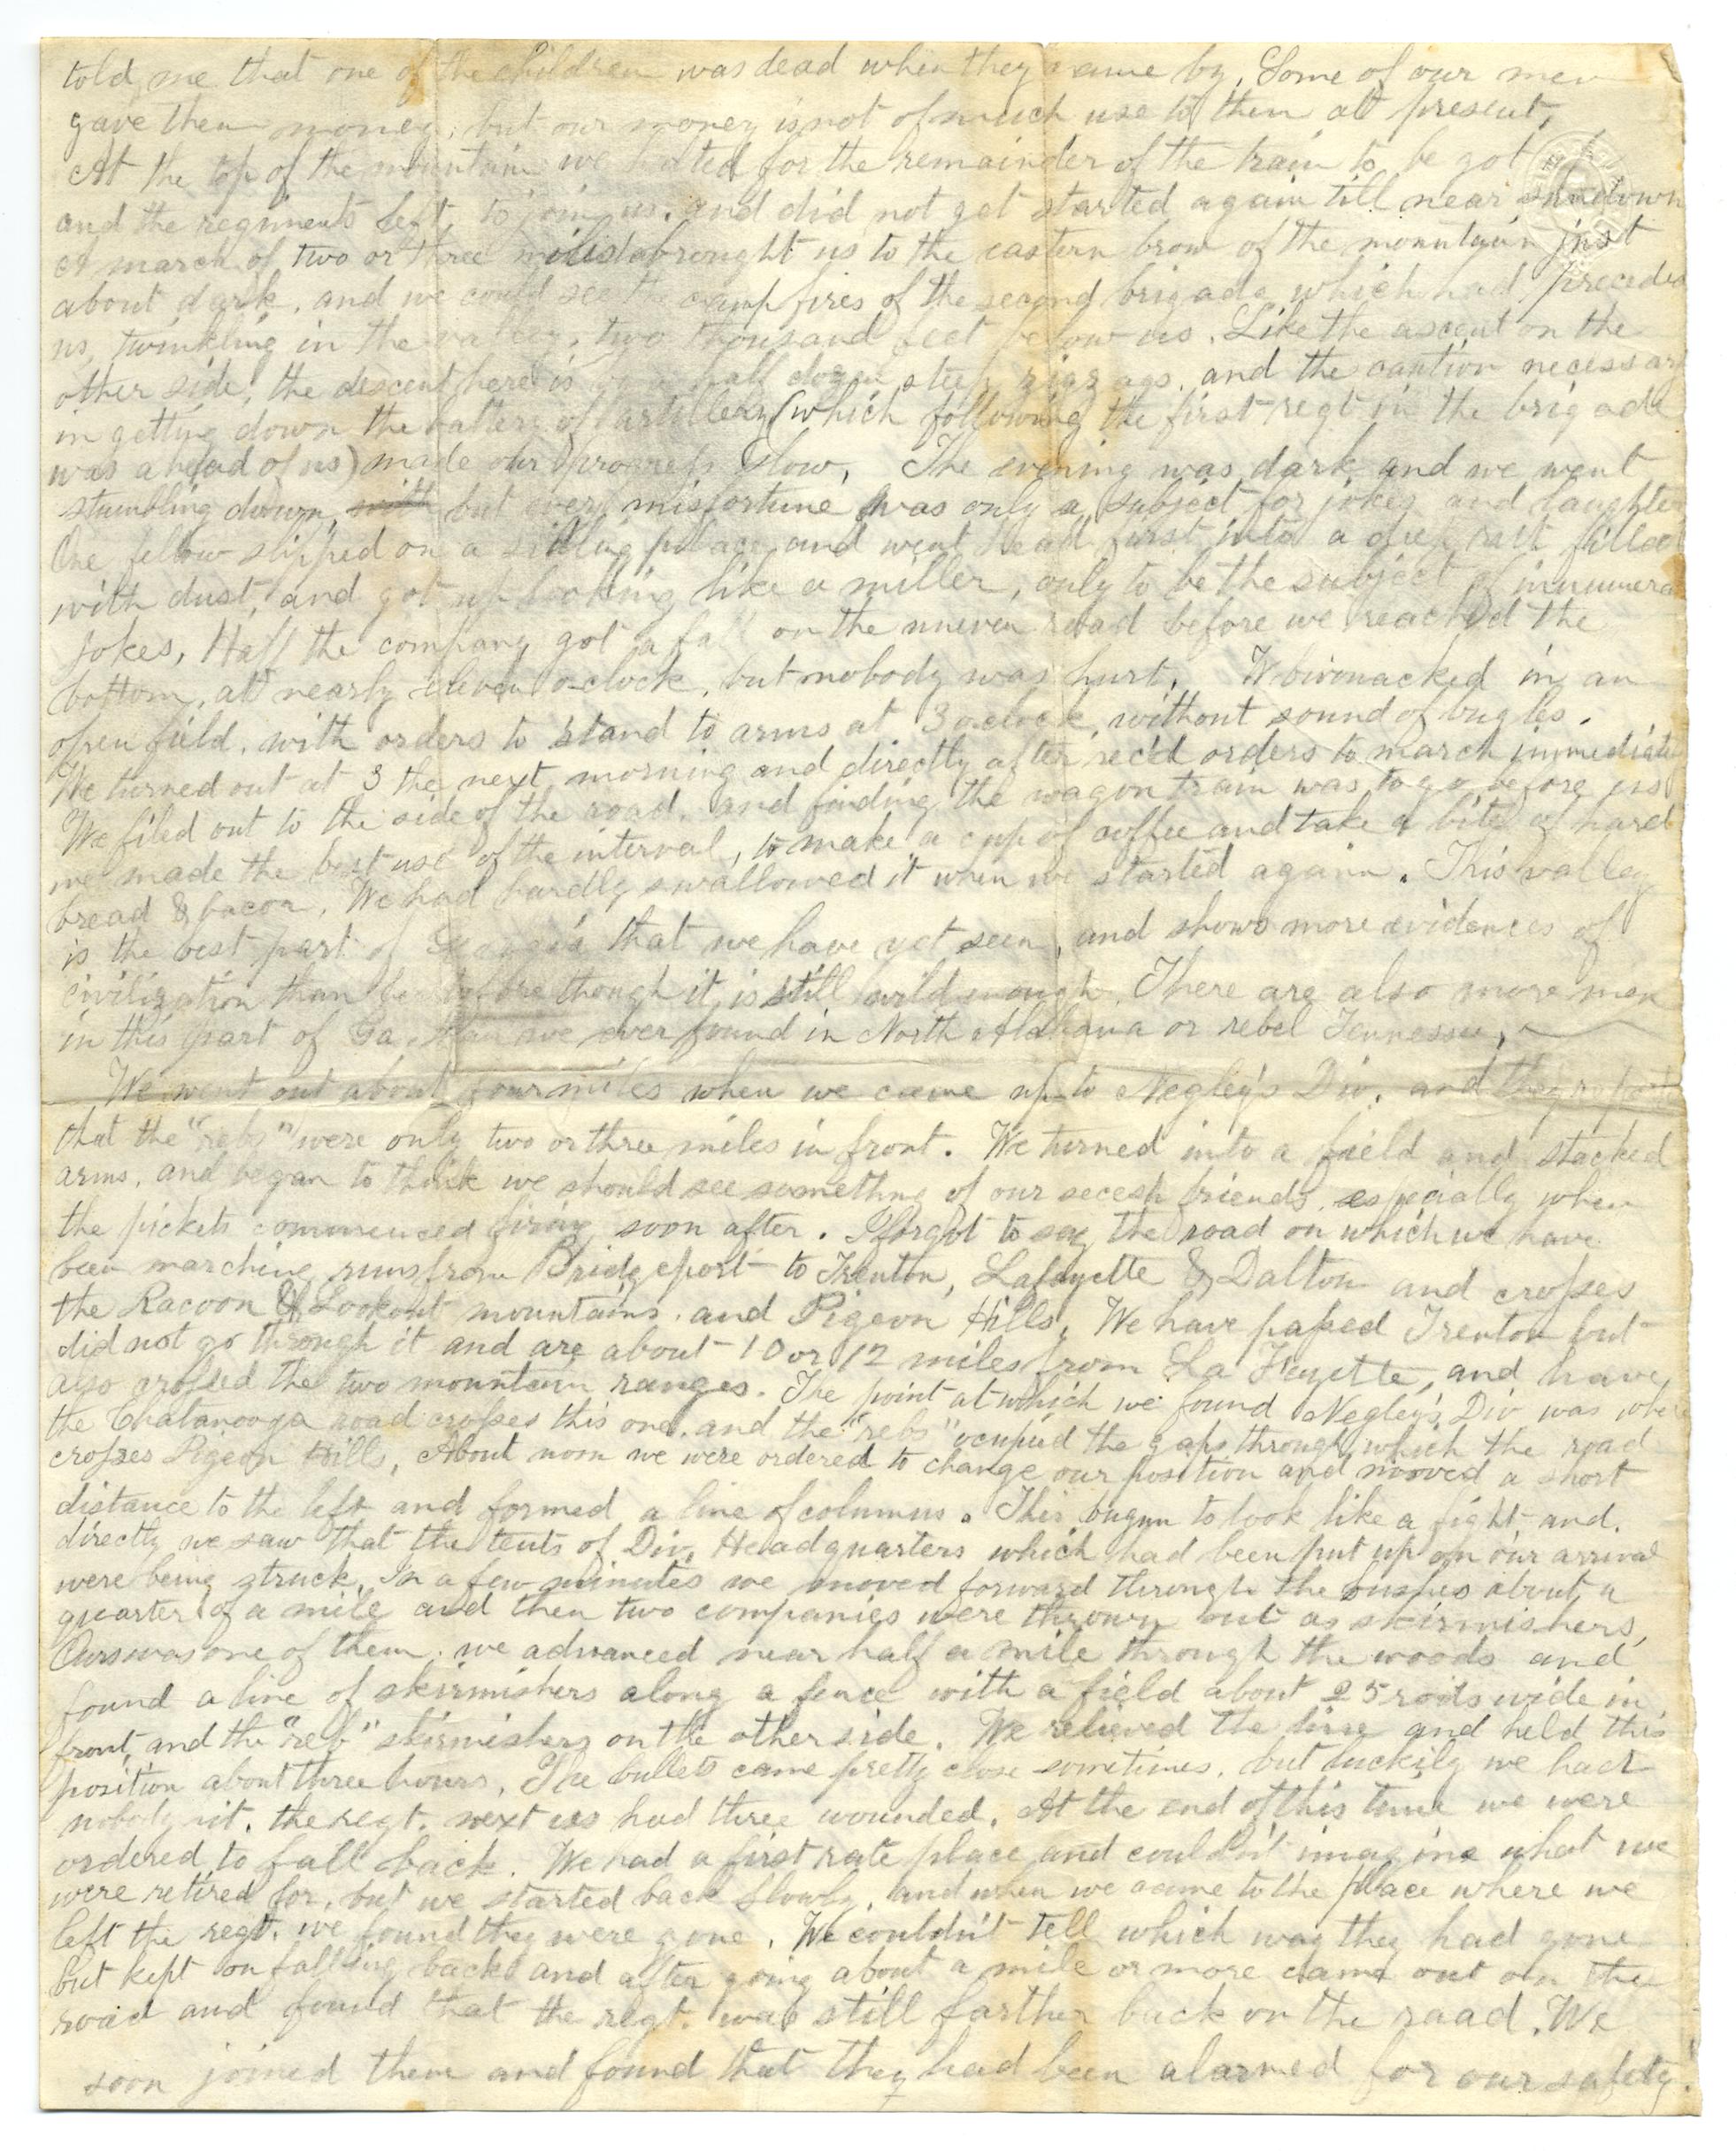 told me that one of the children was dead when they came by. Some of our men
gave them money, but our money is not of much use to them at present.
At the top of the mountain we halted for the remainder of the train to be got
and the regiments left, to join us, and did not get started again till near sundown
A march of two or three miles brought us to the eastern brow of the mountain just
about dark, and we could see the camp fires of the second brigade which had preceded
us, twinkling in the valley, two thousand feet below us. Like the ascent on the
other side, the descent here is by a half dozen steep zigzags, and the caution necessary
in getting down the battery of artillery (which following the first regt in the brigade
was ahead of us) made our progress slow. The evening was dark and we went
stumbling down, with but every misfortune was only a subject for jokes and laughter
One fellow slipped on a place and went head first into a deep rut filled
with dust, and got up looking like a miller, only to be the subject of innumera
jokes, Half the company got a fall on the uneven road before we reached the
bottom, at nearly eleven o'clock, but nobody was hurt. W bivouacked in an
open field, with orders to stand to arms at 3 o'clock, without sound of bugles.
We turned out at 3 the next morning and directly after rec'd orders to march immediate
We filed out to the side of the road, and finding the wagon train was to go before us
we made the best use of the interval, to make a cup of coffee and take a bite of hard
bread & bacon. We had hardly swallowed it when we started again. This valley
is the best part of Georgia that we have yet seen, and shows more evidences of
civilization than before though it is still wild enough. There are also more men
in this part of Ga. than we ever found in North Alabama or rebel Tennessee.
We went out about four miles when we came up to Negley's Div. and they report
that the "rebs" were only two or three miles in front. We turned into a field and stacked
arms, and began to think we should see something of our secesh friends, especially when
the pickets commenced firing soon after. I forgot to say the road on which we have
been marching runs from Bridgeport to Trenton, Lafayette & Dalton and crosses
the Racoon & Lookout mountains, and Pigeon Hills. We have passed Trenton but
did not go through it and are about 10 or 12 miles from La Fayette, and have
also crossed the two mountain ranges. The point at which we found Negley's Div was whe
the Chatanooga road crosses this one, and the "rebs" ocupied the gaps through which the road
crosses Pigeon Hills. About noon we were ordered to change our position and mooved a short
distance to the left and formed a line of columns. This began to look like a fight, and
directly we saw that the tents of Div. Headquarters which had been put up on our arrival
were being struck. In a few minutes we moved forward through the bushes about a
quarter of a mile and then two companies were thrown out as skirmishers,
Ours was one of them, we advanced near half a mile through the woods and
found a line of skirmishers along a fence with a field about 25 rods wide in
front, and the "reb" skirmishers on the other side. We relieved the line and held this
position about three hours. The bullets came pretty close sometimes, but luckily we had
nobody hit, the regt. next us had three wounded. At the end of this time we were
ordered to fall back. We had a first rate place and couldn't imagine what we
were retired for, but we started back slowly, and when we came to the place where we
left the regt. we found they were gone. We couldn't tell which way they had gone
but kept on falling back and after going about a mile or more came out on the
road and found that the regt. was still farther back on the road. We
soon joined them and found that they had been alarmed for our safety.